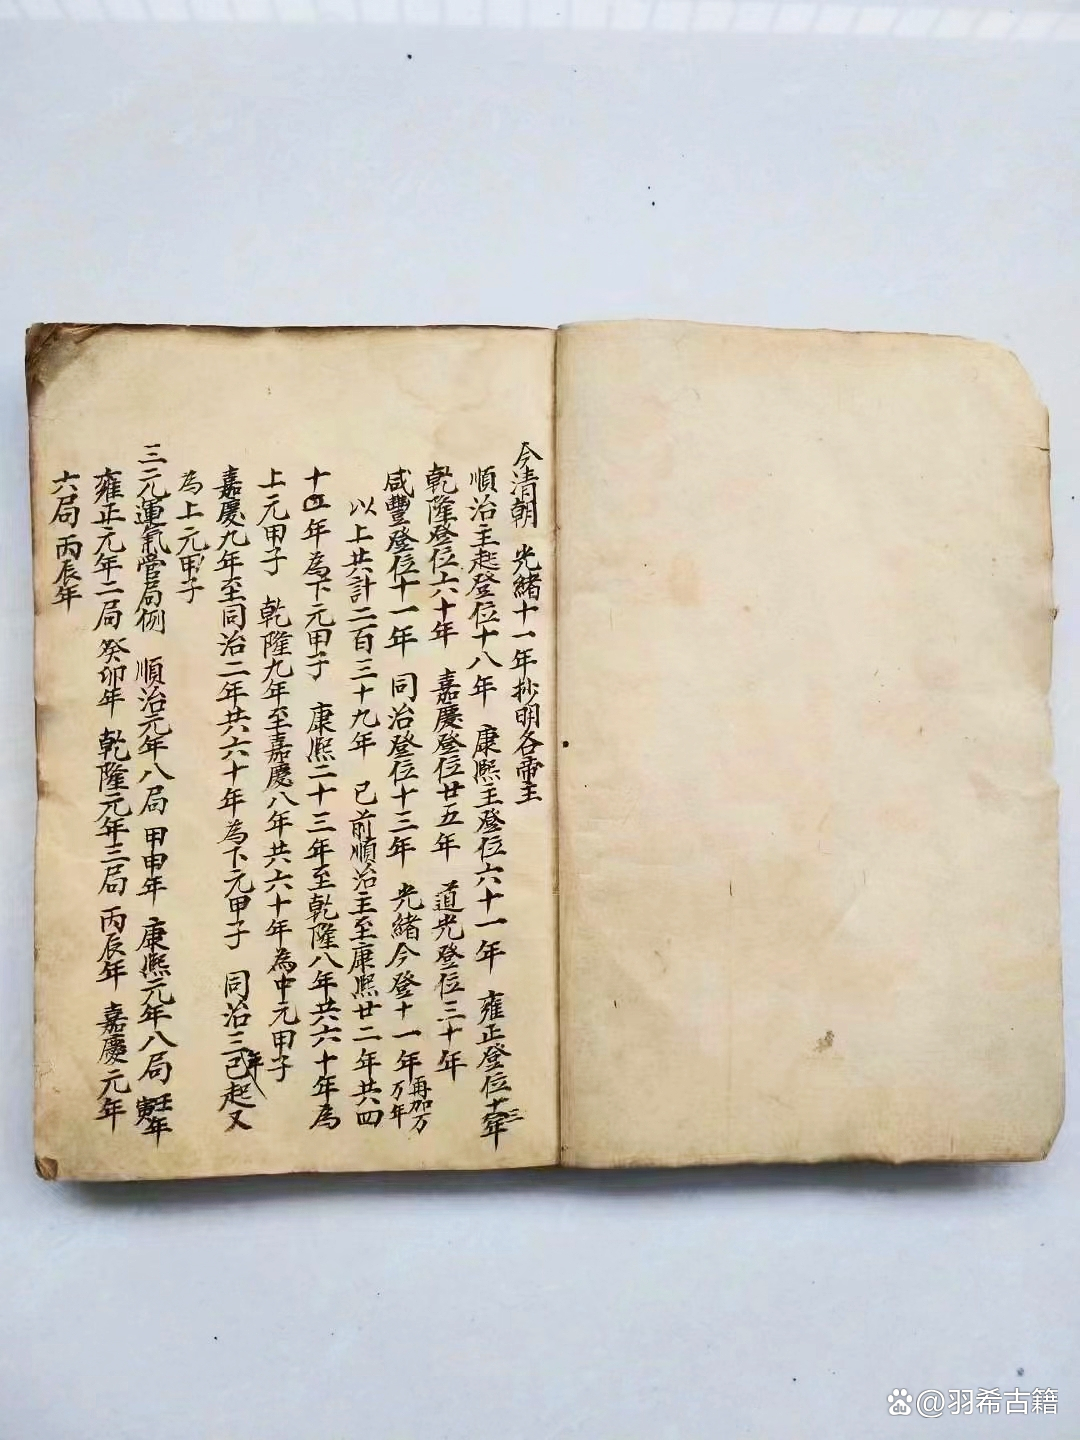 今清朝 光緒十一年抄明各帝主
順治主起登位十八年 康熙主登位六十一年 雍正登位十三年
乾隆登位六十年 嘉慶登位廿五年 道光登位三十年
咸豐登位十一年 同治登位十三年 光緒今登十一年 再加万万年
以上共計二百三十九年 已前順治主至康熙廿二年共四
十年為下元甲子 康熙二十三年至乾隆八年共六十年為
上元甲子 乾隆九年至嘉慶八年共六十年為中元甲子
嘉慶九年至同治二年共六十年為下元甲子 同治三年已起又
為上元甲子
三元運氣管局例 順治元年八局 甲申年 康熙元年八局 壬寅年
雍正元年二局 癸卯年 乾隆元年三局 丙辰年 嘉慶元年
六局 丙辰年
du @羽希古籍